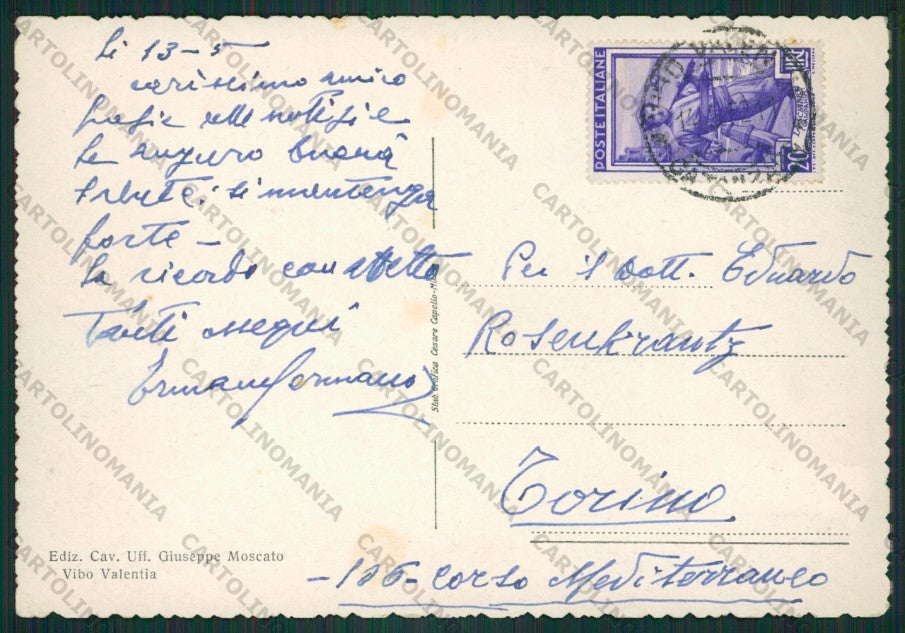 Li 13-5
carissimo amico
Grazie delle notizie
Le auguro buona
salute: si mantenga
forte -
La ricordo con affetto
Tanti ossequi
Germano
Ediz. Cav. Uff. Giuseppe Moscato
Vibo Valentia
Stab. Grafico Cesare Capello-Milano
POSTE ITALIANE
Per il Dott. Eduardo
Rosenkrantz
Torino
- 106 - corso Mediterraneo
CARTOLINOMANIA